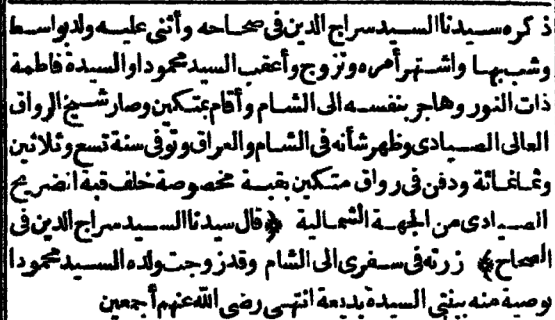 ذكره سيدنا السيد سراج الدين فى صحاحه وأثنى عليه ولد بواسط
وشب بها واشتهر أمره وتزوج وأعقب السيد محمودا والسيدة فاطمة
ذات النور وهاجر بنفسه الى الشام وأقام بمتكين وصار شيخ الرواق
العالى الصيادى وظهر شأنه فى الشام والعراق وتوفى سنة تسع وثلاثين
وثمانمائة ودفن فى رواق متكين بقبة مخصوصة خلف قبة الضريح
الصيادى من الجهة الشمالية ﴿قال سيدنا السيد سراج الدين فى
الصحاح﴾ زرته فى سفرى الى الشام وقد زوجت ولده السيد محمودا
بوصية منه ببنتى السيدة بديعة انتهى رضى الله عنهم أجمعين